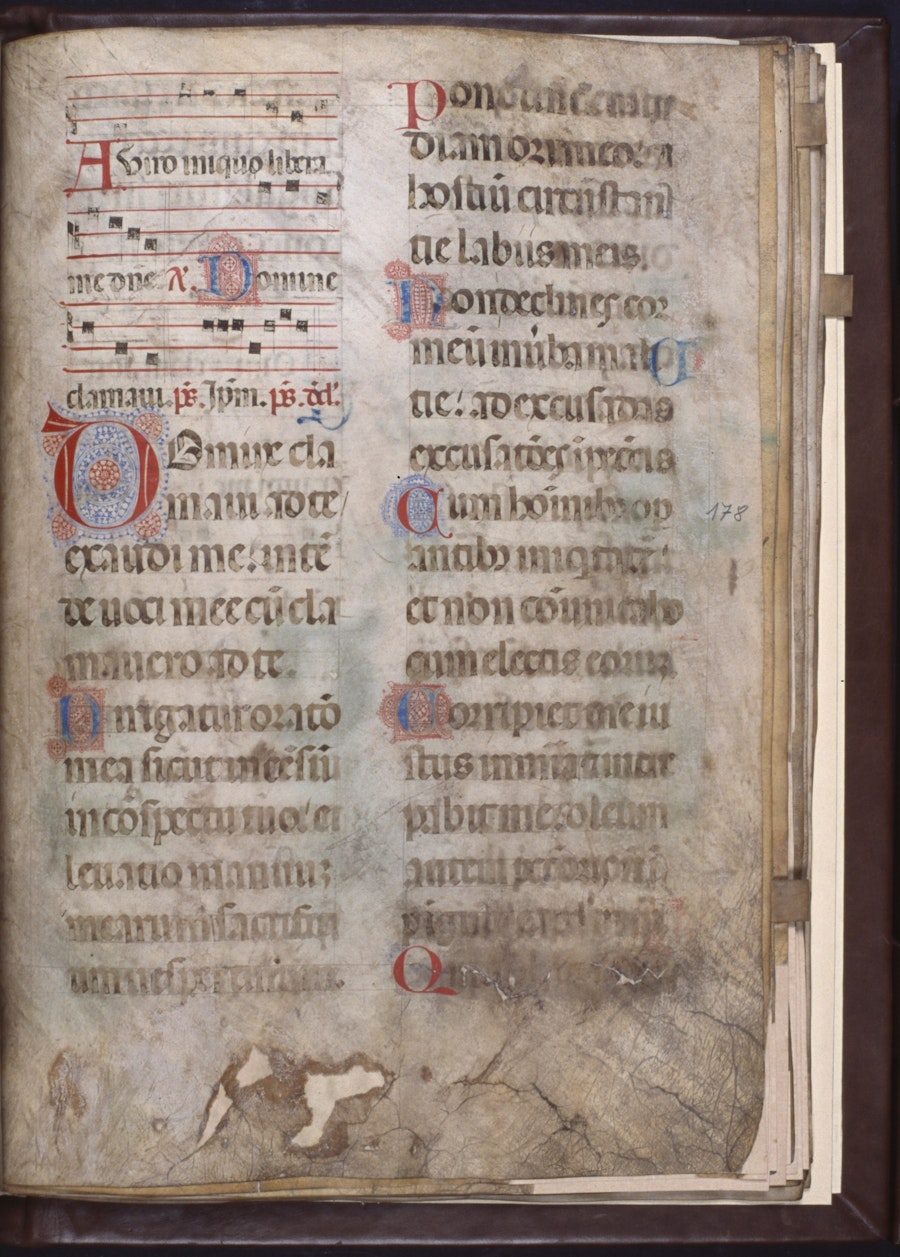 A viro iniquo libera
me dñe. R. Domine
clamaui. ps. Ip̄m. ps. dd̄.
DOmine cla
maui ad te
exaudi me: intē
de uoci mee cū cla
mauero ad te.
Dirigatur oratō
mea sicut incēsū
in cōspectu tuo: el
leuatio manuuȝ
mearum sacrifici
um uespertinum.
Pone domine custo
diam ori meo: et
hostiū circūstan
tie labiis meis.
Non declines cor
meū in ūba mali
tie: ad excusādas
excusatōes ī pctīs
Cum hoīnibꝫ op
antibꝫ iniqtatē:
et non cōmunicabo
cum electis eorum
Corripiet me iu
stus in mīa: ⁊ incre
pabit me: oleum
autem pctōris nō ī
pīguet
Q
178